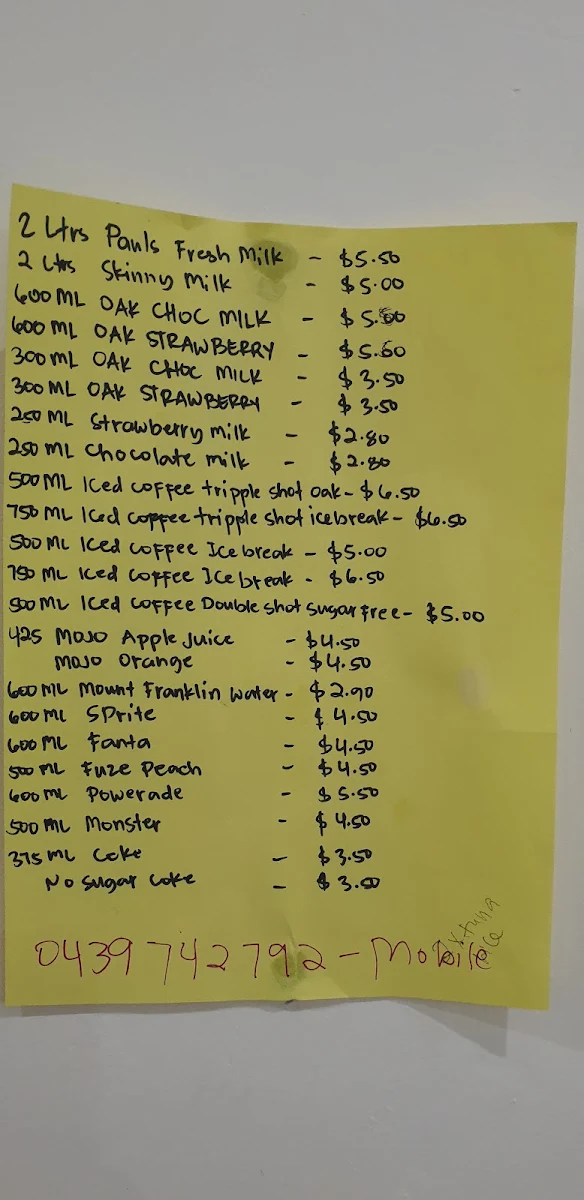 2 Ltrs Pauls Fresh Milk - $5.50
2 Ltrs Skinny Milk - $5.00
600 ML OAK CHOC MILK - $5.60
600 ML OAK STRAWBERRY - $5.60
300 ML OAK CHOC MILK - $3.50
300 ML OAK STRAWBERRY - $3.50
250 ML Strawberry milk - $2.80
250 ML Chocolate milk - $2.80
500 ML Iced coffee tripple shot oak - $6.50
750 ML Iced coffee tripple shot icebreak - $6.50
500 ML Iced coffee Ice break - $5.00
750 ML Iced coffee Ice break - $6.50
500 ML Iced coffee Double shot sugar free - $5.00
425 MOJO Apple Juice - $4.50
MOJO Orange - $4.50
600 ML Mount Franklin water - $2.90
600 ML SPrite - $4.50
600 ML Fanta - $4.50
500 ML Fuze Peach - $4.50
600 ML Powerade - $5.50
500 ML Monster - $4.50
375 ML Coke - $3.50
No sugar coke - $3.50
0439 742792 - Mobile